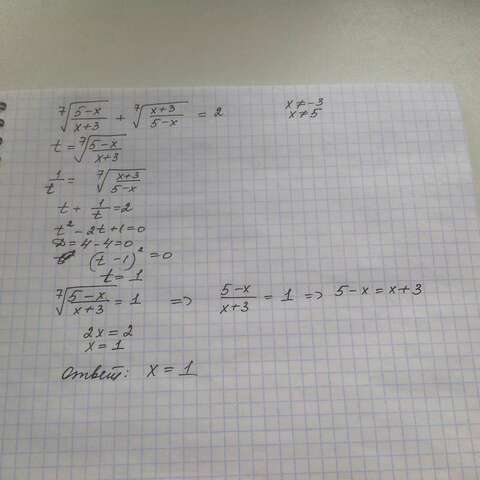 ⁷√((5-x)/(x+3)) + ⁷√((x+3)/(5-x)) = 2
x ≠ -3
x ≠ 5
t = ⁷√((5-x)/(x+3))
1/t = ⁷√((x+3)/(5-x))
t + 1/t = 2
t² - 2t + 1 = 0
D = 4 - 4 = 0
(t - 1)² = 0
t = 1
⁷√((5-x)/(x+3)) = 1 => (5-x)/(x+3) = 1 => 5-x = x+3
2x = 2
x = 1
Ответ: x = 1